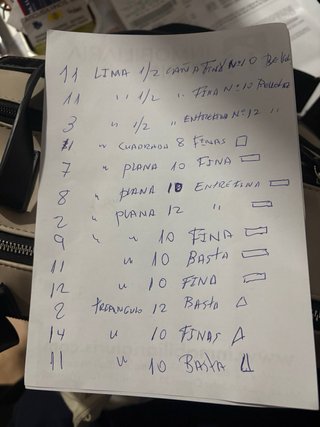 11 LIMA 1/2 CAÑA FINA Nº10
11 " 1/2 " FINA Nº10
3 " 1/2 " ENTREFINA Nº12 "
4 " CUADRADA 8 FINAS
7 " PLANA 10 FINA
8 " PLANA 10 ENTREFINA
2 " PLANA 12 "
9 " " 10 FINA
11 " 10 BASTA
12 " 10 FINA
2 TRIANGULO 12 BASTA
14 " 10 FINAS
11 " 10 BASTA